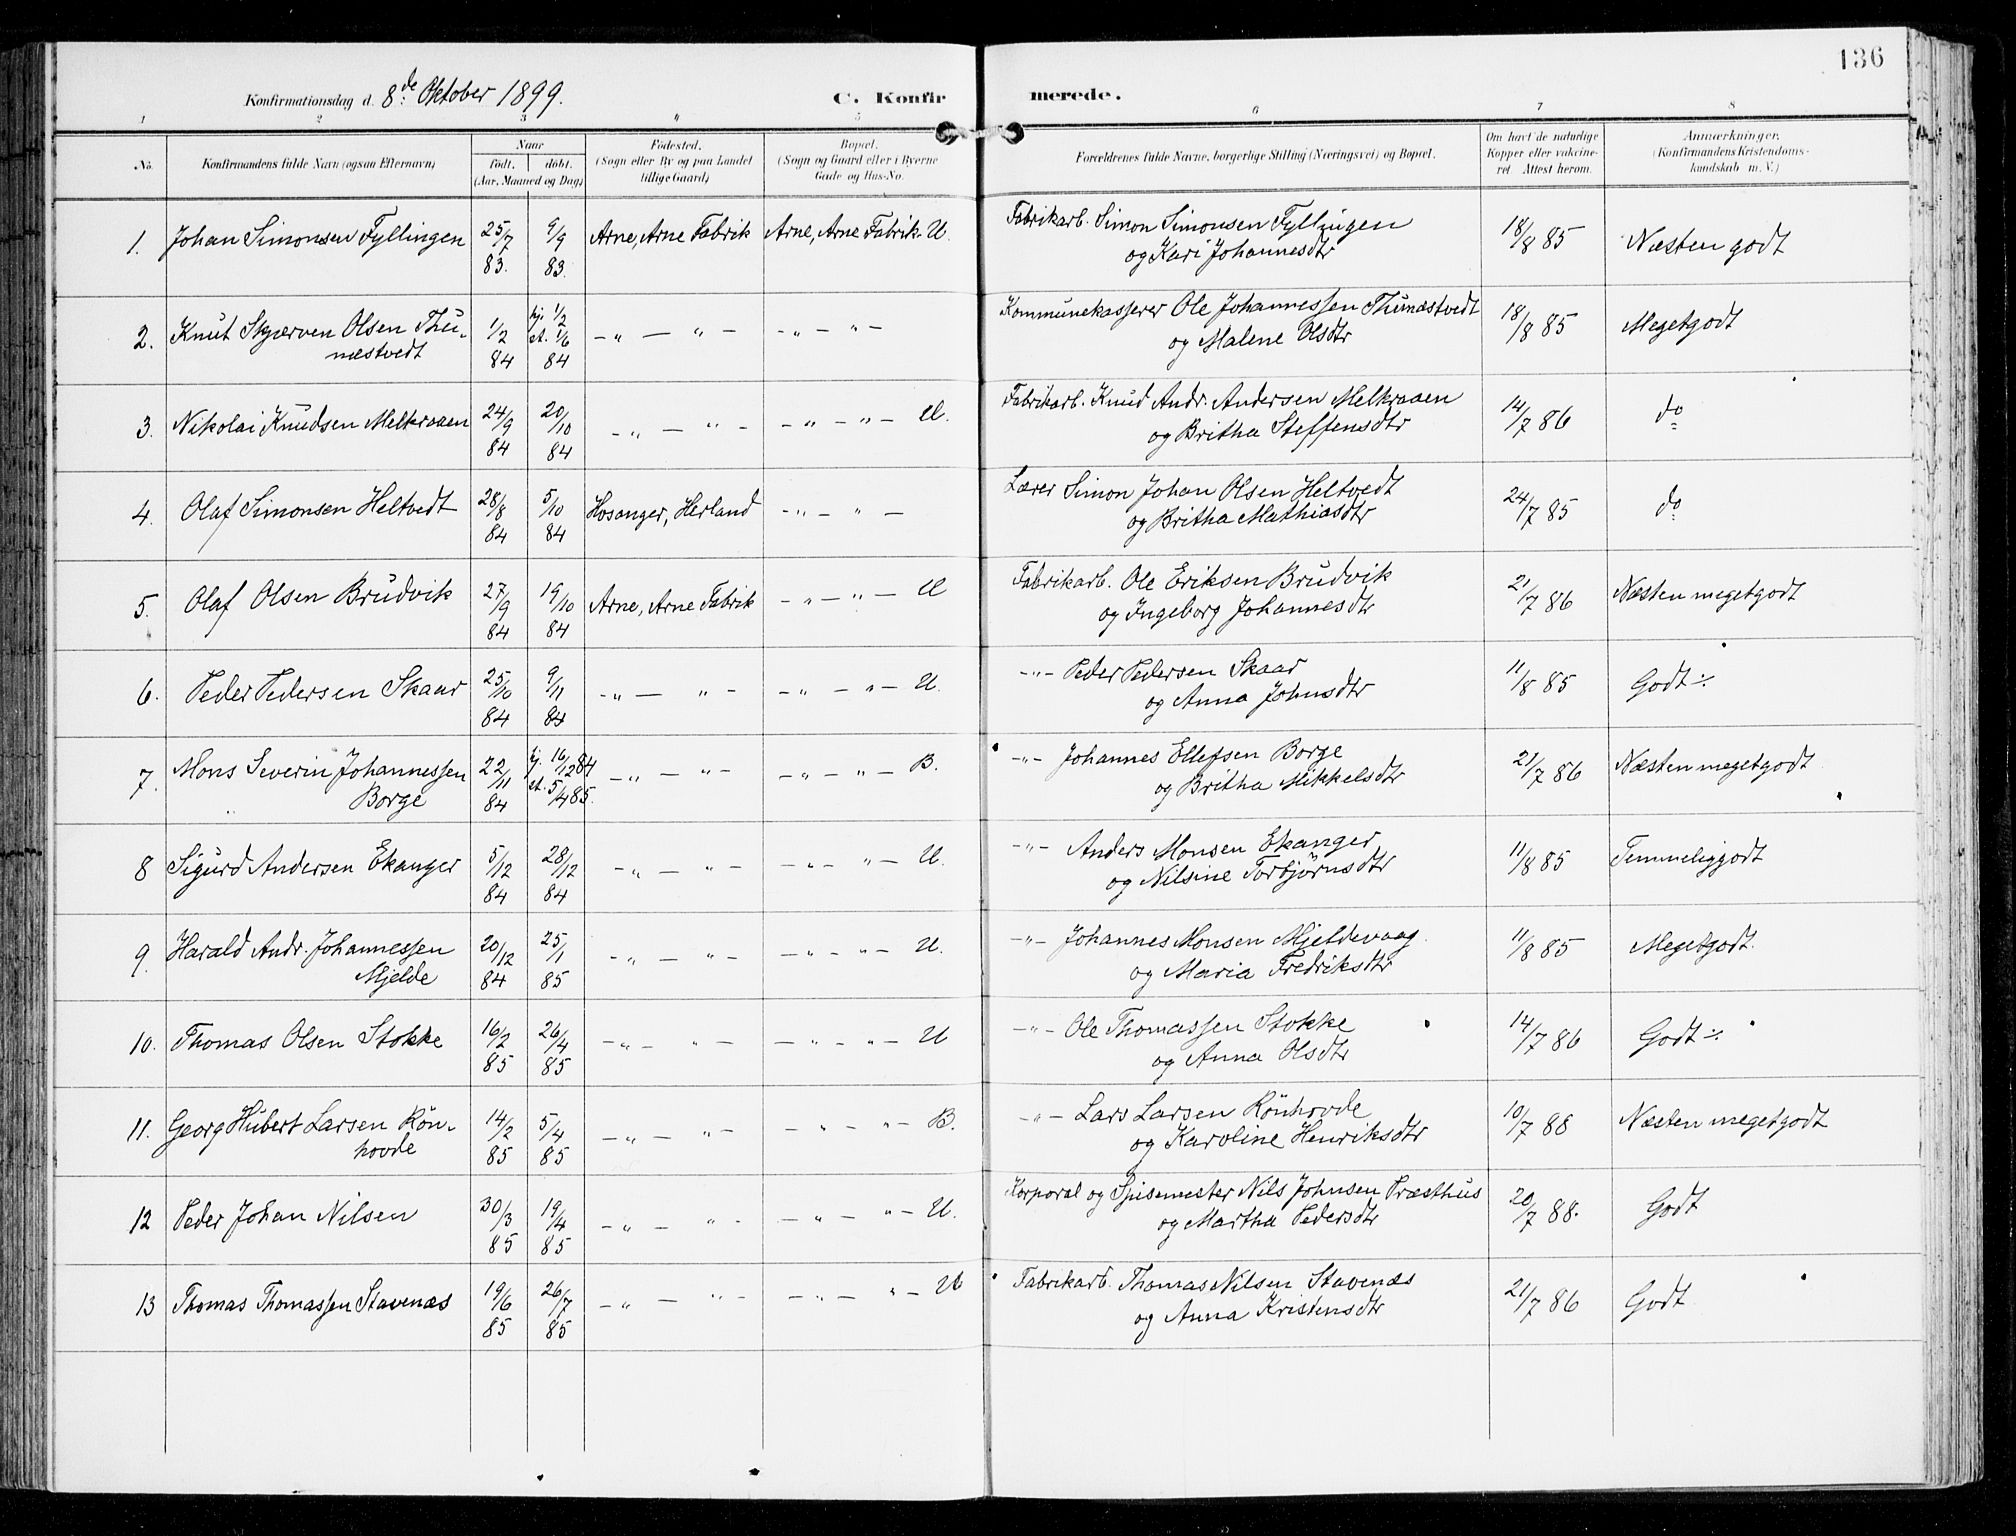 136
Konfirmationsdag d. 8de Oktober 1899. C. Konfirmerede.
1 2 3 4 5 6 7 8
No. Konfirmandens fulde Navn (ogsaa Efternavn) Naar født, døbt. (Aar, Maaned og Dag) Fødested. (Sogn eller By og paa Landet tillige Gaard) Bopæl. (Sogn og Gaard eller i Byerne Gade og Hus-No. Forældrenes fulde Navne, borgerlige Stilling (Næringsvei) og Bopæl. Om havt de naturlige Kopper eller vakcineret. Attest herom. Anmærkninger. (Konfirmandens Kristendomskundskab m. V.)
1. Johan Simonsen Fyllingen 25/7 83. 9/9 83. Arne, Arne Fabrik Arne, Arne Fabrik. U. Fabrikarb. Simon Simonsen Fyllingen og Kari Johannesdtr 18/8 85 Næsten godt
2. Knut Skjærven Olsen Thunæstvedt 1/2 84 hj. 1/2 et. 1/6 84 -"- "- -"- "- Kommunekasserer Ole Johannessen Thunæstvedt og Malene Olsdtr 18/8 85 Megetgodt
3. Nikolai Knudsen Melkraaen 24/9 84 20/10 84 -"- "- -"- "- U. Fabrikarb. Knud Andr. Andersen Melkraaen og Britha Steffensdtr 14/7 86 do
4. Olaf Simonsen Heltvedt 28/8 84 5/10 84 Hosanger, Herland -"- "- Lærer Simon Johan Olsen Heltvedt og Britha Mathiasdtr 24/7 85 do
5. Olaf Olsen Brudvik 27/9 84 19/10 84 Arne, Arne Fabrik -"- "- U Fabrikarb. Ole Eriksen Brudvik og Ingeborg Johannesdtr 21/7 86 Næsten megetgodt
6. Peder Pedersen Skaar 25/10 84 9/11 84 -"- "- -"- "- U. -"- Peder Pedersen Skaar og Anna Johnsdtr 11/8 85 Godt ÷
7. Mons Severin Johannessen Borge 22/11 84 hj. 16/12 84 et. 5/4 85. -"- "- -"- "- B. -"- Johannes Ellefsen Borge og Britha Mikkelsdtr 21/7 86 Næsten megetgodt
8 Sigurd Andersen Ekanger 5/12 84 28/12 84 -"- "- -"- "- U. -"- Anders Monsen Ekanger og Nilsine Torbjørnsdtr 11/8 85 Temmeliggodt
9. Harald Andr. Johannessen Mjelde 20/12 84 25/1 85 -"- "- -"- "- U. -"- Johannes Monsen Mjeldevaag. og Maria Fredriksdtr 11/8 85 Megetgodt.
10. Thomas Olsen Stokke 16/2 85 26/4 85 -"- "- -"- "- U -"- Ole Thomassen Stokke og Anna Olsdtr 14/7 86 Godt ÷
11. Georg Hubert Larsen Rönhovde 14/2 85 5/4 85 -"- "- -"- "- B. -"- Lars Larsen Rönhovde og Karoline Henriksdtr 10/7 88 Næsten megetgodt
12 Peder Johan Nilsen 30/3 85 19/4 85 -"- "- -"- "- U. Korporal og Spisemester Nils Johnsen Præsthus og Martha Pedersdtr 20/7 88. Godt
13 Thomas Thomassen Stavenæs 19/6 85 26/7 85 -"- "- -"- "- U Fabrikarb. Thomas Nilsen Stavenæs og Anna Kristensdtr 21/7 86 Godt